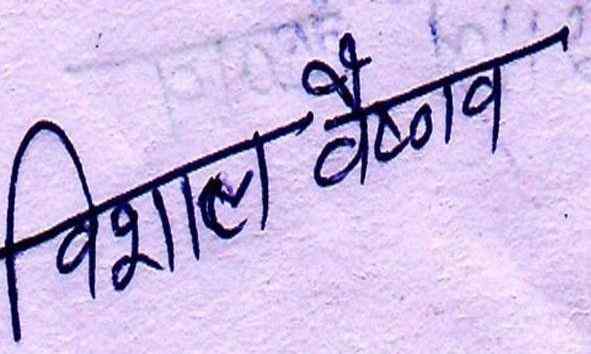 विशाल वैष्णव